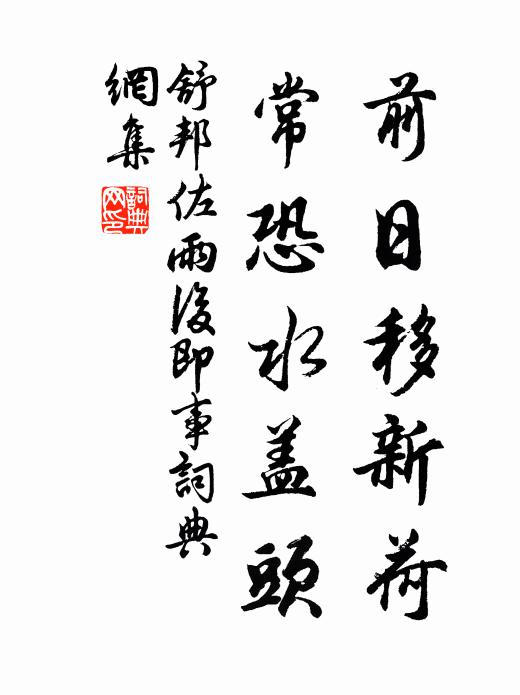 前日移新荷
常恐水盖頭
舒邦佐雨後即事詞典
網集
詞典
网印